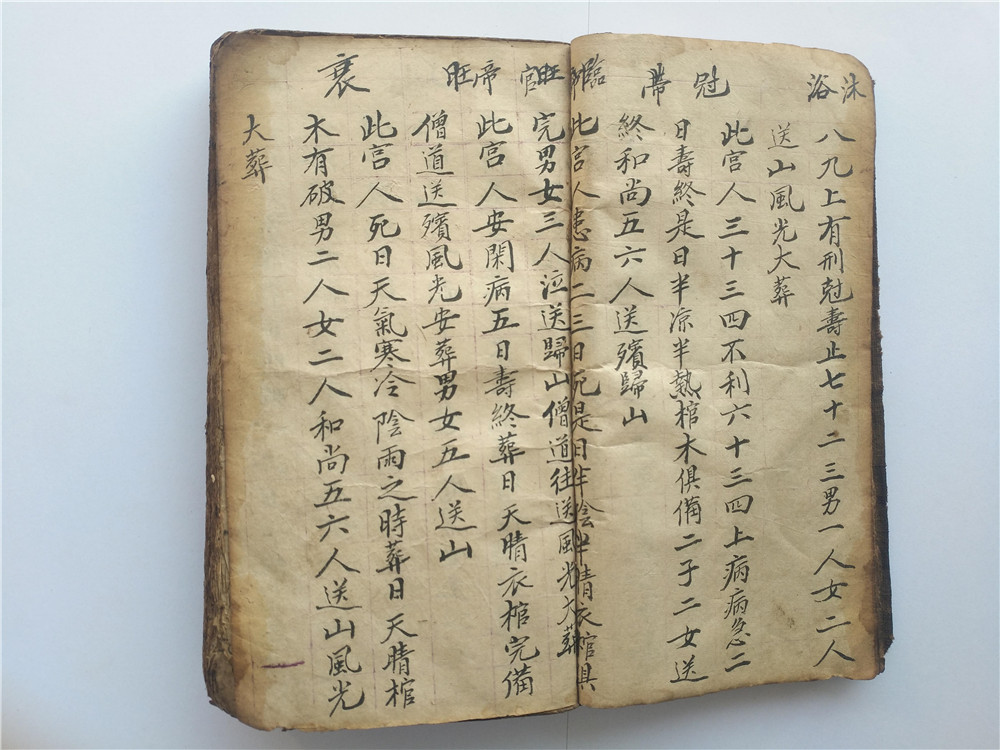 沐浴
八九上有刑尅壽止七十二三男一人女二人
送山風光大葬
冠帶
此宫人三十三四不利六十三四上病病急二
日壽終是日半凉半熱棺木俱備二子二女送
終和尚五六人送殯歸山
臨官
此宫人患病二三日死是日半陰半晴衣棺俱
完男女三人泣送歸山僧道往送風光大葬
帝旺
此宫人安閑病五日壽終葬日天晴衣棺完備
僧道送殯風光安葬男女五人送山
衰
此宫人死日天氣寒冷陰雨之時葬日天晴棺
木有破男二人女二人和尚五六人送山風光
大葬